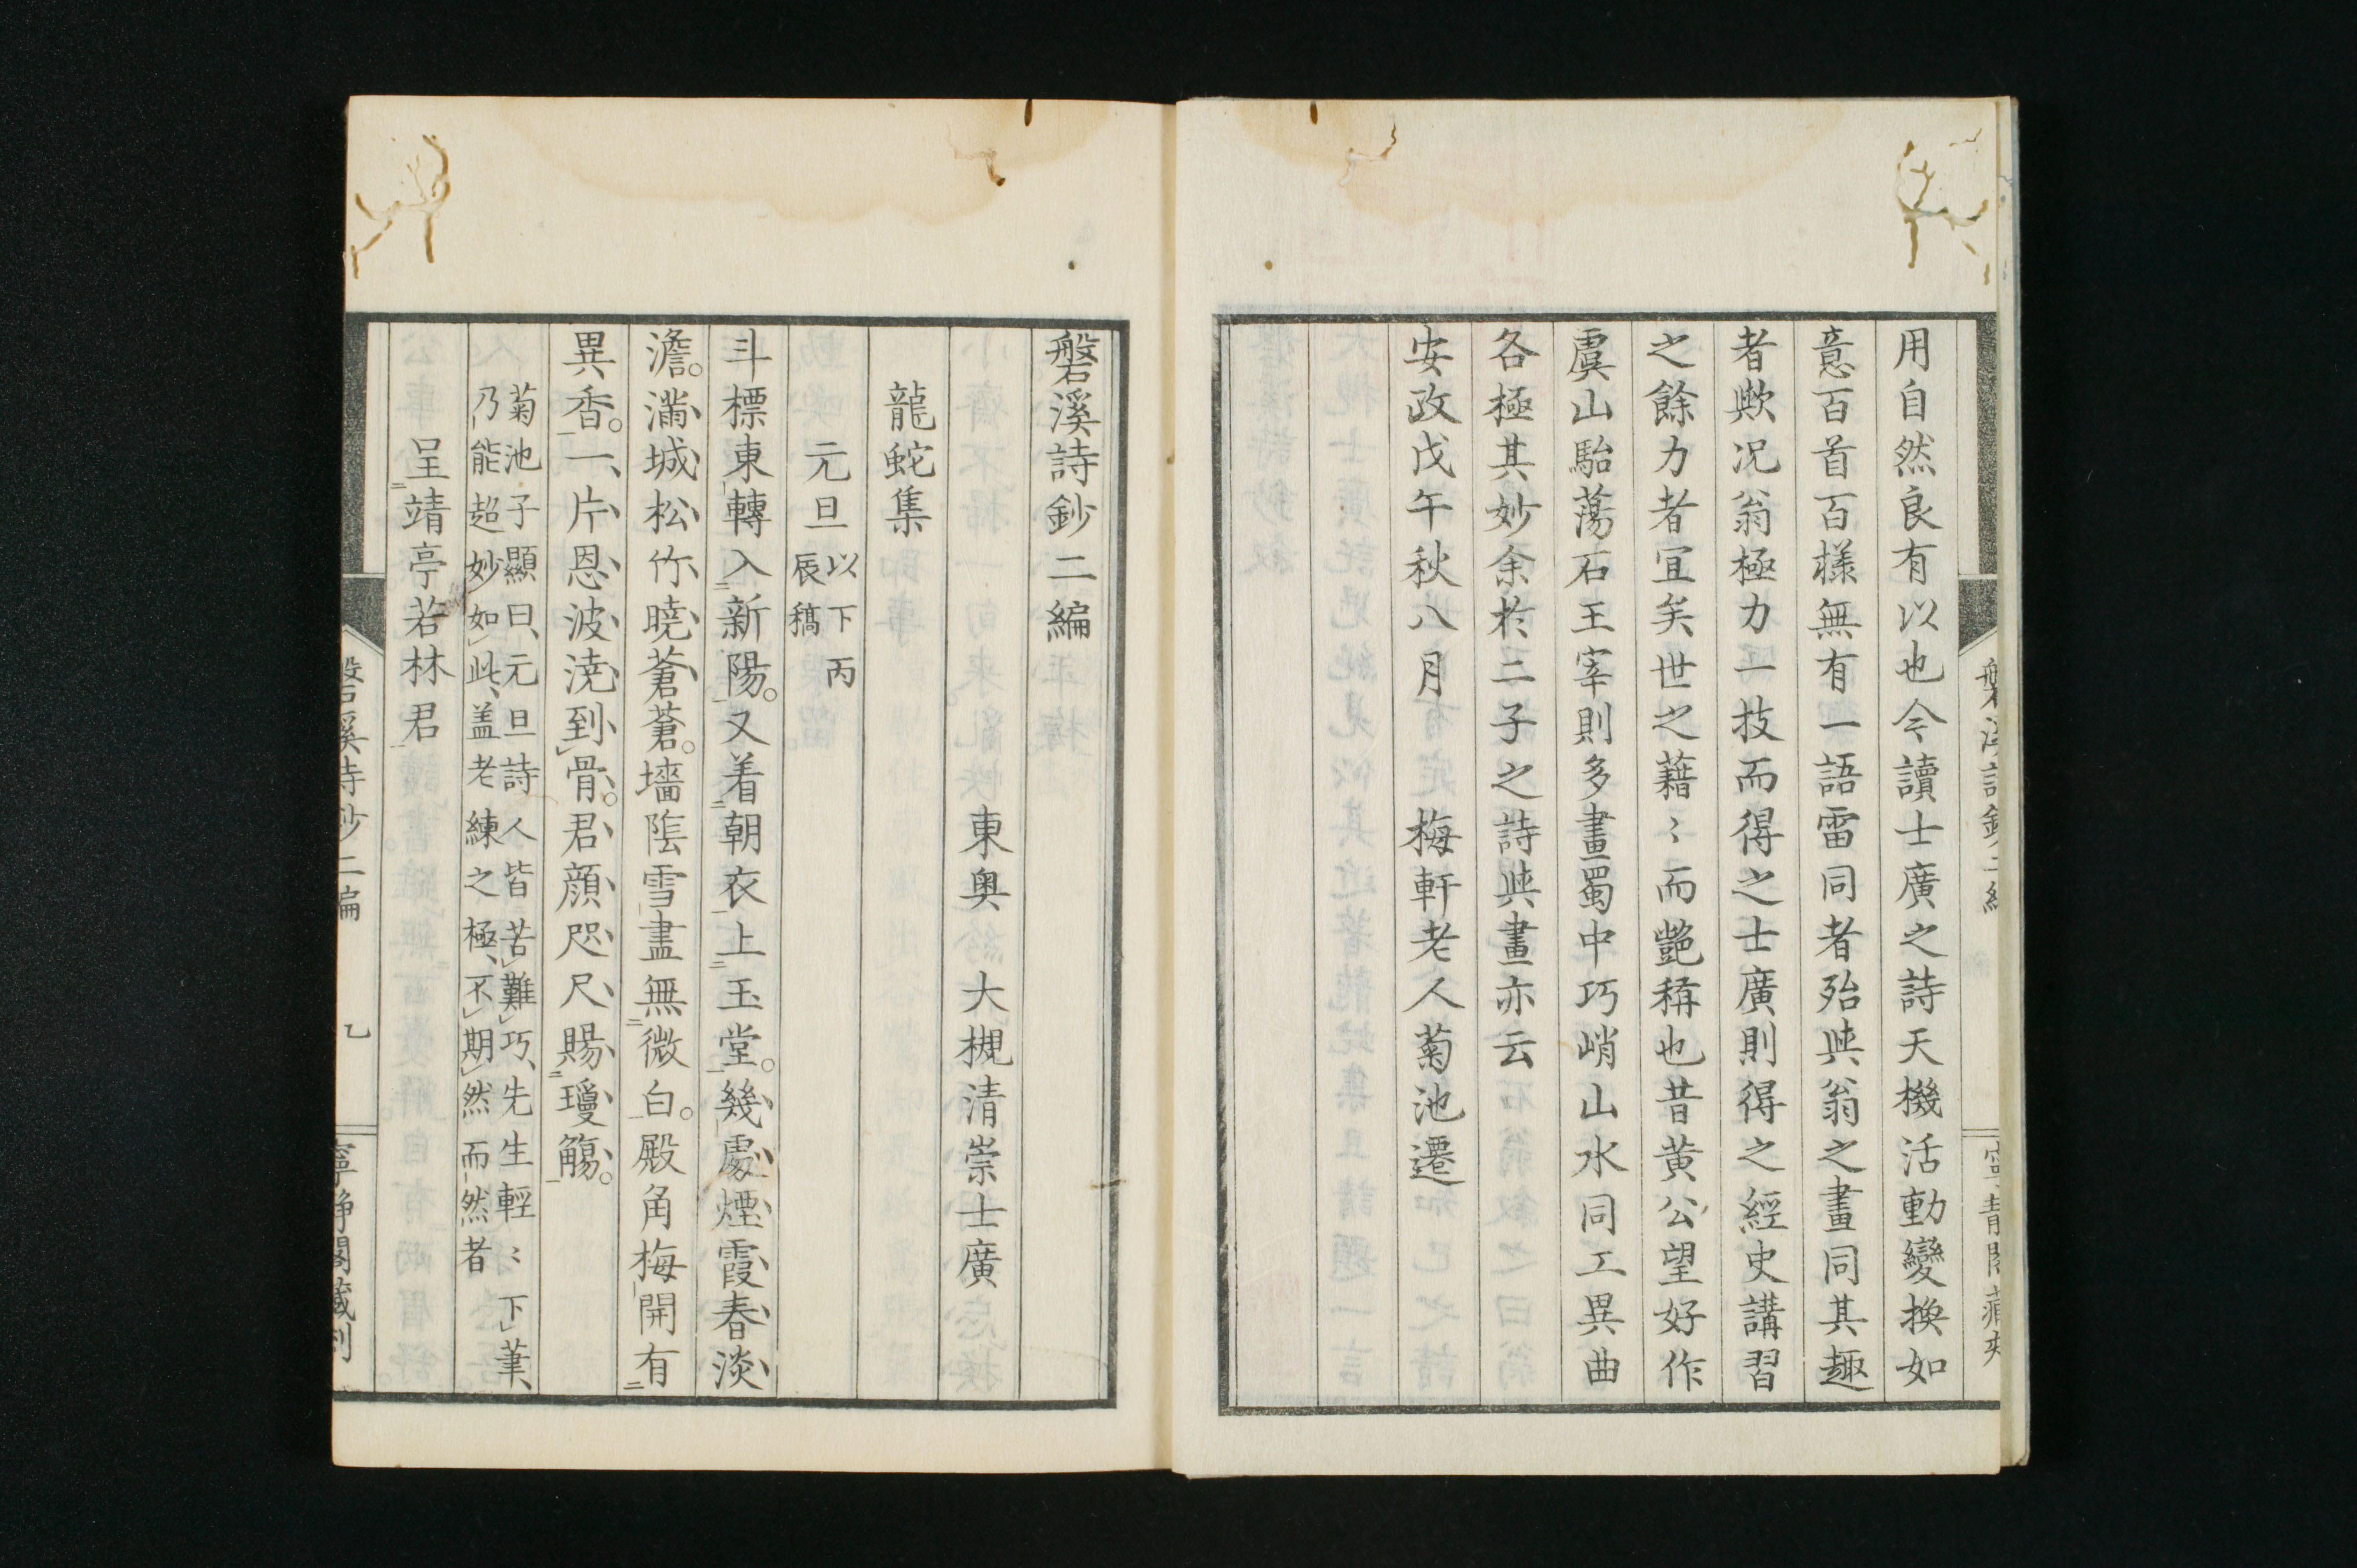 用自然良有以也今讀士廣之詩天機活動變換如
意百首百様無有一語雷同者殆與翁之畫同其趣
者歟况翁極力一技而得之士廣則得之經史講習
之餘力者宜矣世之藉〻而艶稱也昔黄公望好作
虞山駘蕩石王宰則多畫蜀中巧峭山水同工異曲
各極其妙余於二子之詩與畫亦云
安政戊午秋八月　梅軒老人菊池遷
磐溪詩鈔二編
東奥　大槻清崇士廣
龍蛇集
元旦 以下丙辰稿
斗標東轉入新陽。又着朝衣上玉堂。幾處煙霞春淡
澹。滿城松竹曉蒼蒼。墻陰雪盡無微白。殿角梅開有
異香。一片恩波澆到骨。君顔咫尺賜瓊觴。
菊池子顯曰、元旦詩人皆苦難巧、先生輕〻下筆、
乃能超妙如此、盖老練之極、不期然而然者
呈靖亭若林君
磐溪詩鈔二編　乙　寧静閣藏刻